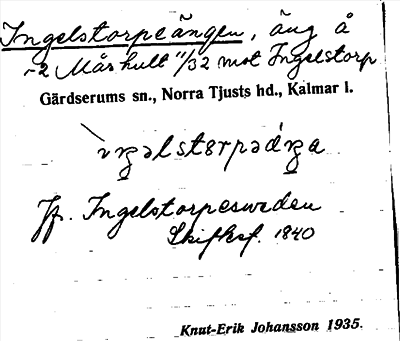 Ingelstorpeängen, äng å
-2 Måshult 11/32 mot Ingelstorp
Gärdserums sn., Norra Tjusts hd., Kalmar l.
Jfr. Ingelstorpesweden
Skifksf. 1840
Knut-Erik Johansson 1935.